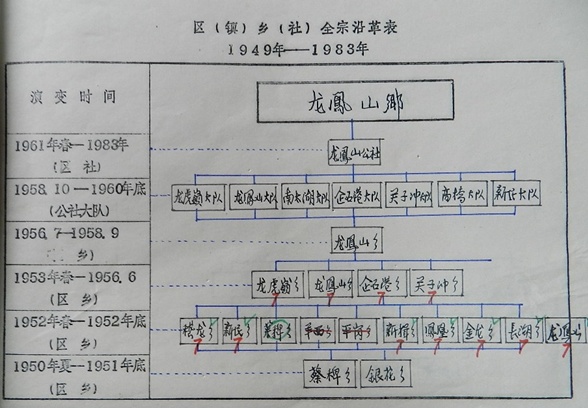 区（镇）乡（社）全宗沿革表
1949年——1983年
演变时间
龙凤山乡
1961年春—1983年
（区 社）
龙凤山公社
1958.10—1960年底
（公社大队）
龙虎岭大队 龙凤山大队 南太湖大队 企石塔大队 关子冲大队 高桥大队 新丘大队
1956.7—1958.9
乡）
龙凤山乡
1953年春—1956.6
（区 乡）
龙虎岭乡 龙凤山乡 企石塔乡 关子冲乡
1952年春—1952年底
（区 乡）
松龙乡 新民乡 蔡椑乡 平西乡 新桥乡 凤凰乡 金龙乡 长湖乡 龙凤山乡
1950年夏—1951年底
（区 乡）
蔡椑乡 银花乡